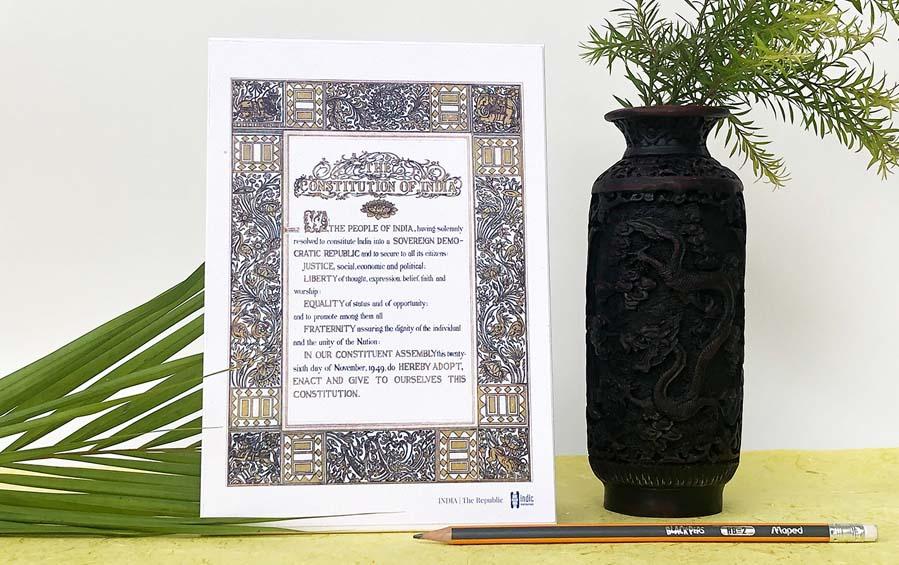 THE
CONSTITUTION OF INDIA
WE, THE PEOPLE OF INDIA, having solemnly
resolved to constitute India into a SOVEREIGN DEMO-
CRATIC REPUBLIC and to secure to all its citizens:
JUSTICE, social, economic and political;
LIBERTY of thought, expression, belief, faith and
worship;
EQUALITY of status and of opportunity;
and to promote among them all
FRATERNITY assuring the dignity of the individual
and the unity of the Nation;
IN OUR CONSTITUENT ASSEMBLY this twenty-
sixth day of November, 1949, do HEREBY ADOPT,
ENACT AND GIVE TO OURSELVES THIS
CONSTITUTION.
INDIA | The Republic
indic
BLACK'PEPS HB=2 Maped